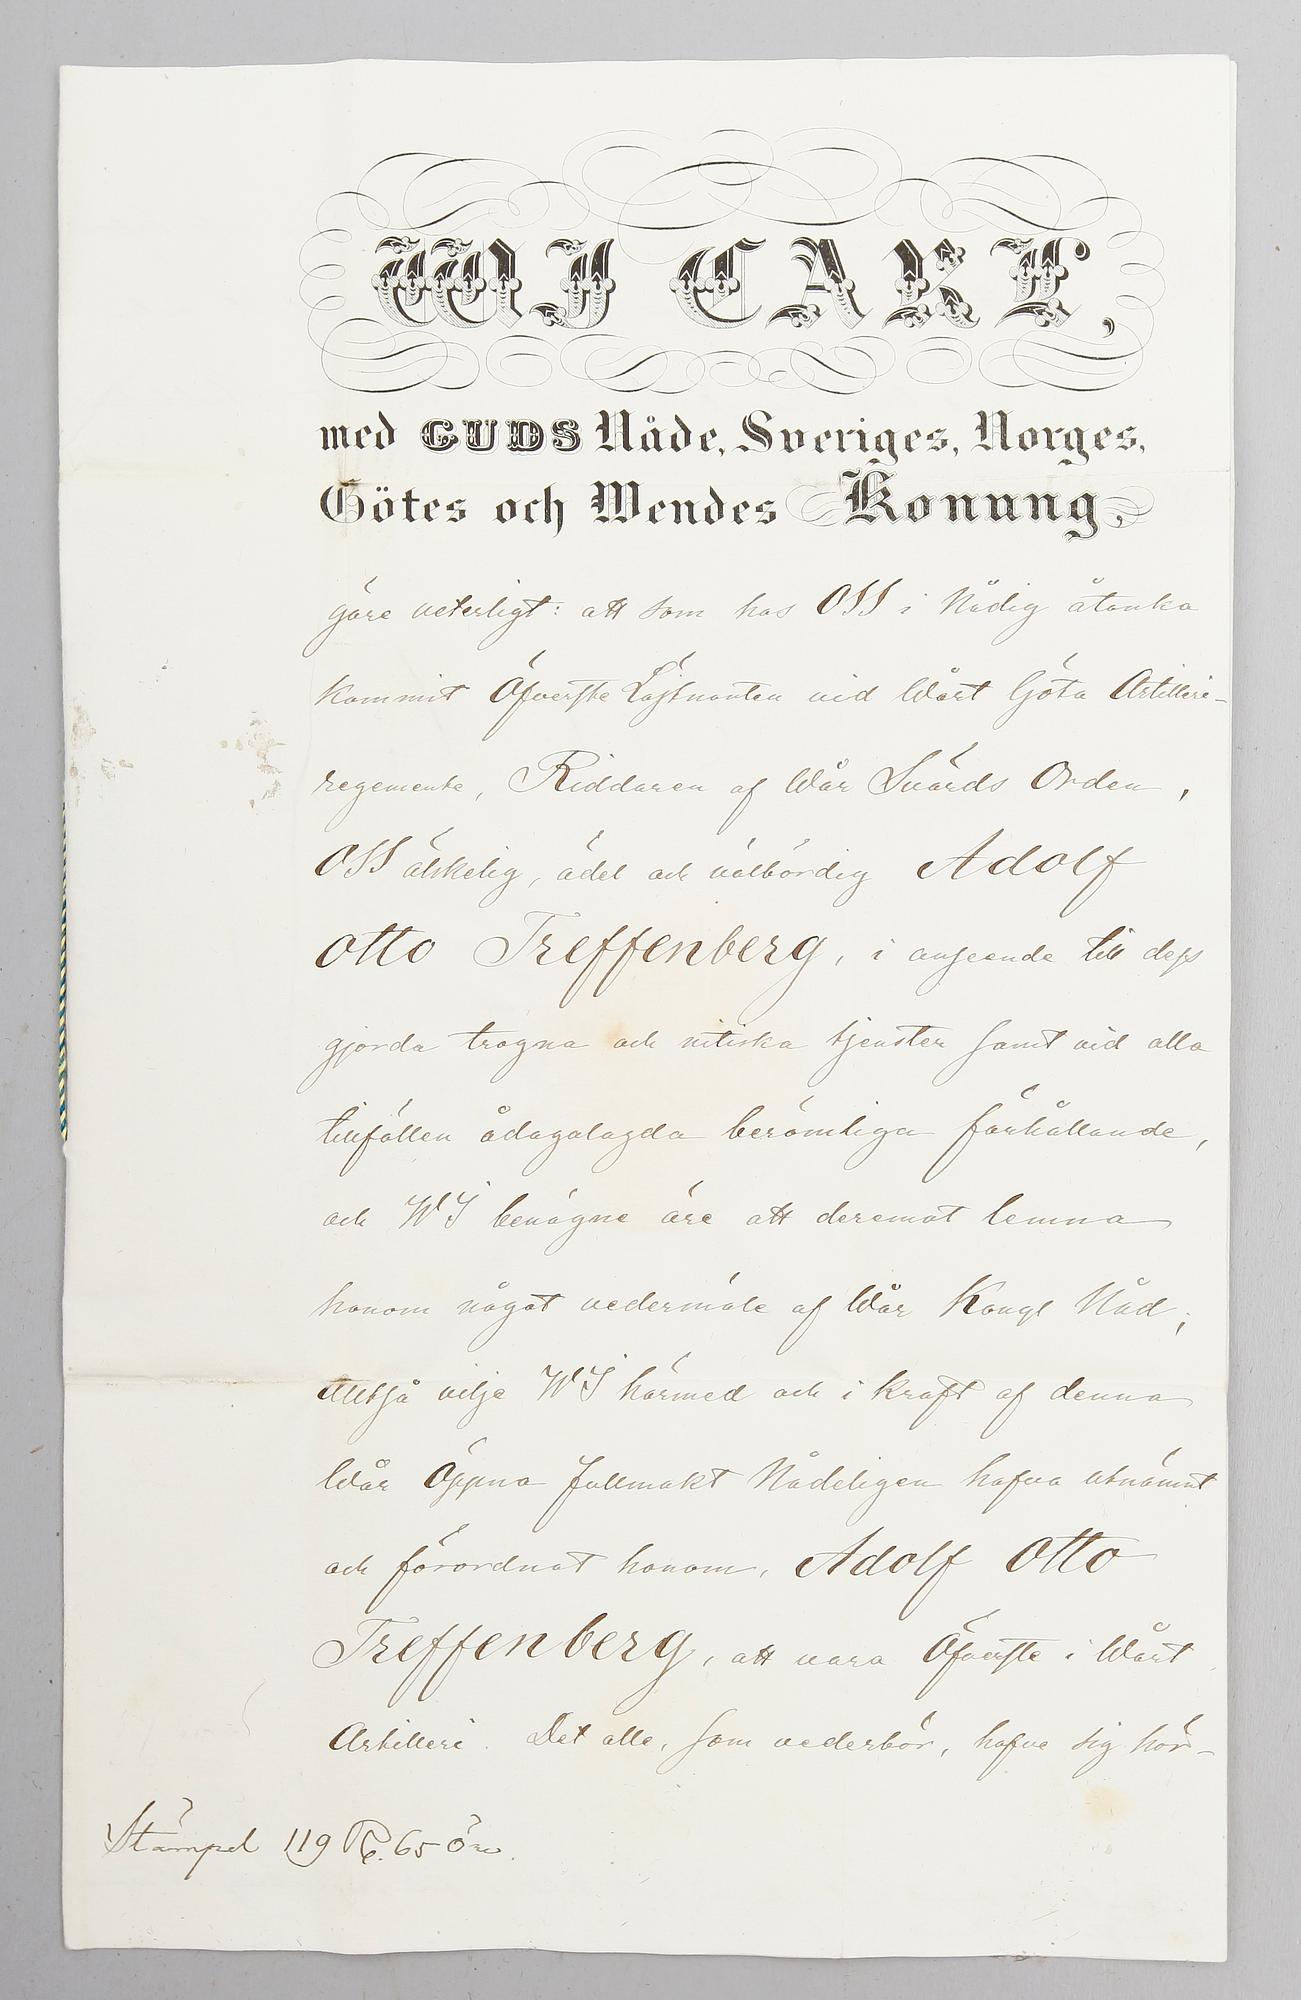 WJ CARL,
med GUDS Nåde, Sveriges, Norges,
Götes och Wendes Konung,
göre veterligt: att som hos OSS i Nådig åtanka
kommit Öfverste Löjtnanten vid Wårt Göta Artilleri-
regemente, Riddaren af Wår Svärds Orden,
OSS älskelig, ädel och välbördig Adolf
Otto Treffenberg, i anseende till dess
gjorda trogna och nitiska tjenster samt vid alla
tillfällen ådagalagda berömliga förhållande,
och WJ benägne äre att deremot lemna
honom något vedermäle af Wår Kongl Nåd;
Alltså vilje WJ härmed och i kraft af denna
Wår Öppna Fullmakt Nådeligen hafva utnämnt
och förordnat honom, Adolf Otto
Treffenberg, att vara Öfverste i Wårt
Artilleri. Det alle, som vederbör, hafve sig hör-
Stämpel 119 Rd. 65 öre.